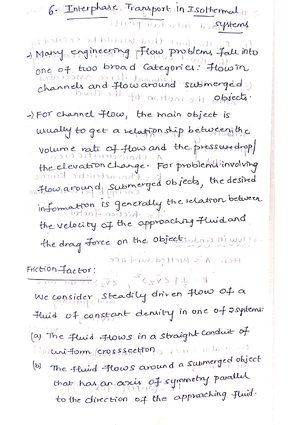 6- Interphase Transport in Isothermal
systems
-) Many engineering flow problems fall into
one of two broad Categories: flow in
channels and flow around submerged
objects.
-) For channel flow, the main object is
usually to get a relationship between the
volume rate of flow and the pressure drop/
the elevation change. For problems involving
flow around submerged objects, the desired
information is generally the relation between
the velocity of the approaching fluid and
the drag force on the object.
Friction Factor:
We consider steadily driven flow of a
fluid of constant density in one of 2 systems:
(a) The fluid flows in a straight conduit of
uniform crosssection
(b) The fluid flows around a submerged object
that has an axis of symmetry parallel
to the direction of the approaching fluid.